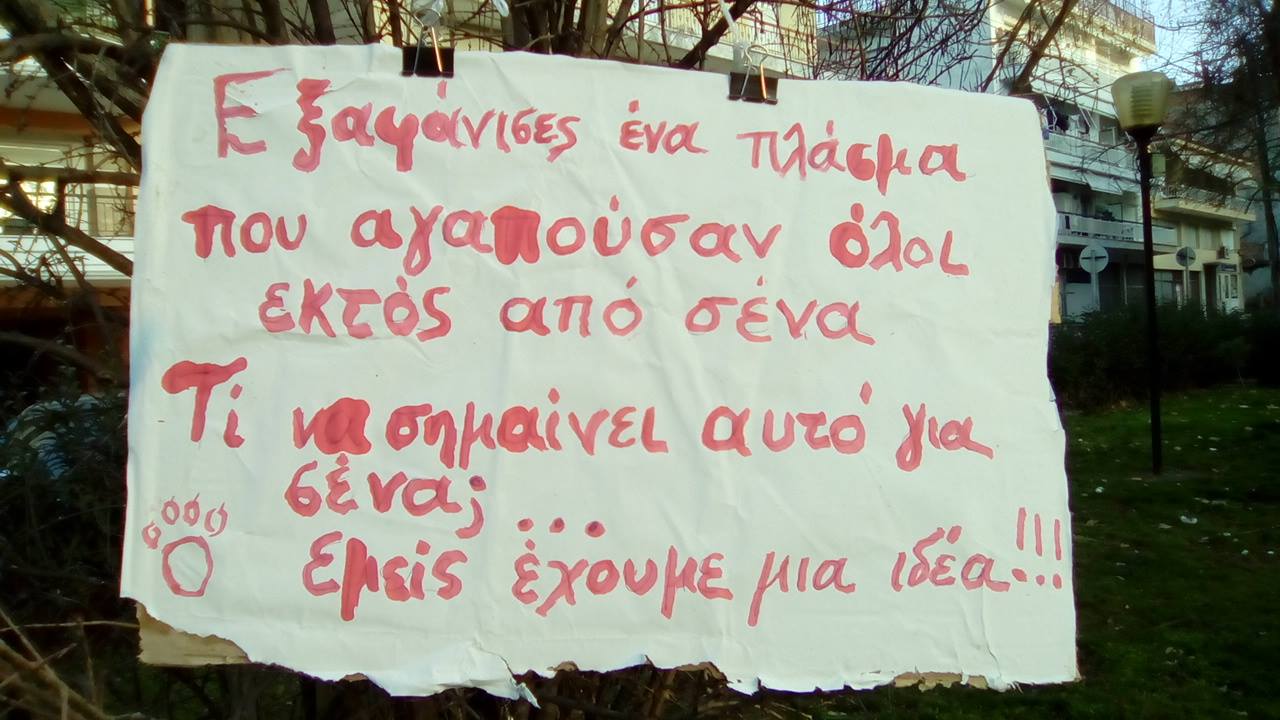 Εξαφάνισες ένα πλάσμα
που αγαπούσαν όλοι
εκτός από σένα
Τί να σημαίνει αυτό για
σένα; ...
Εμείς έχουμε μια ιδέα...!!!